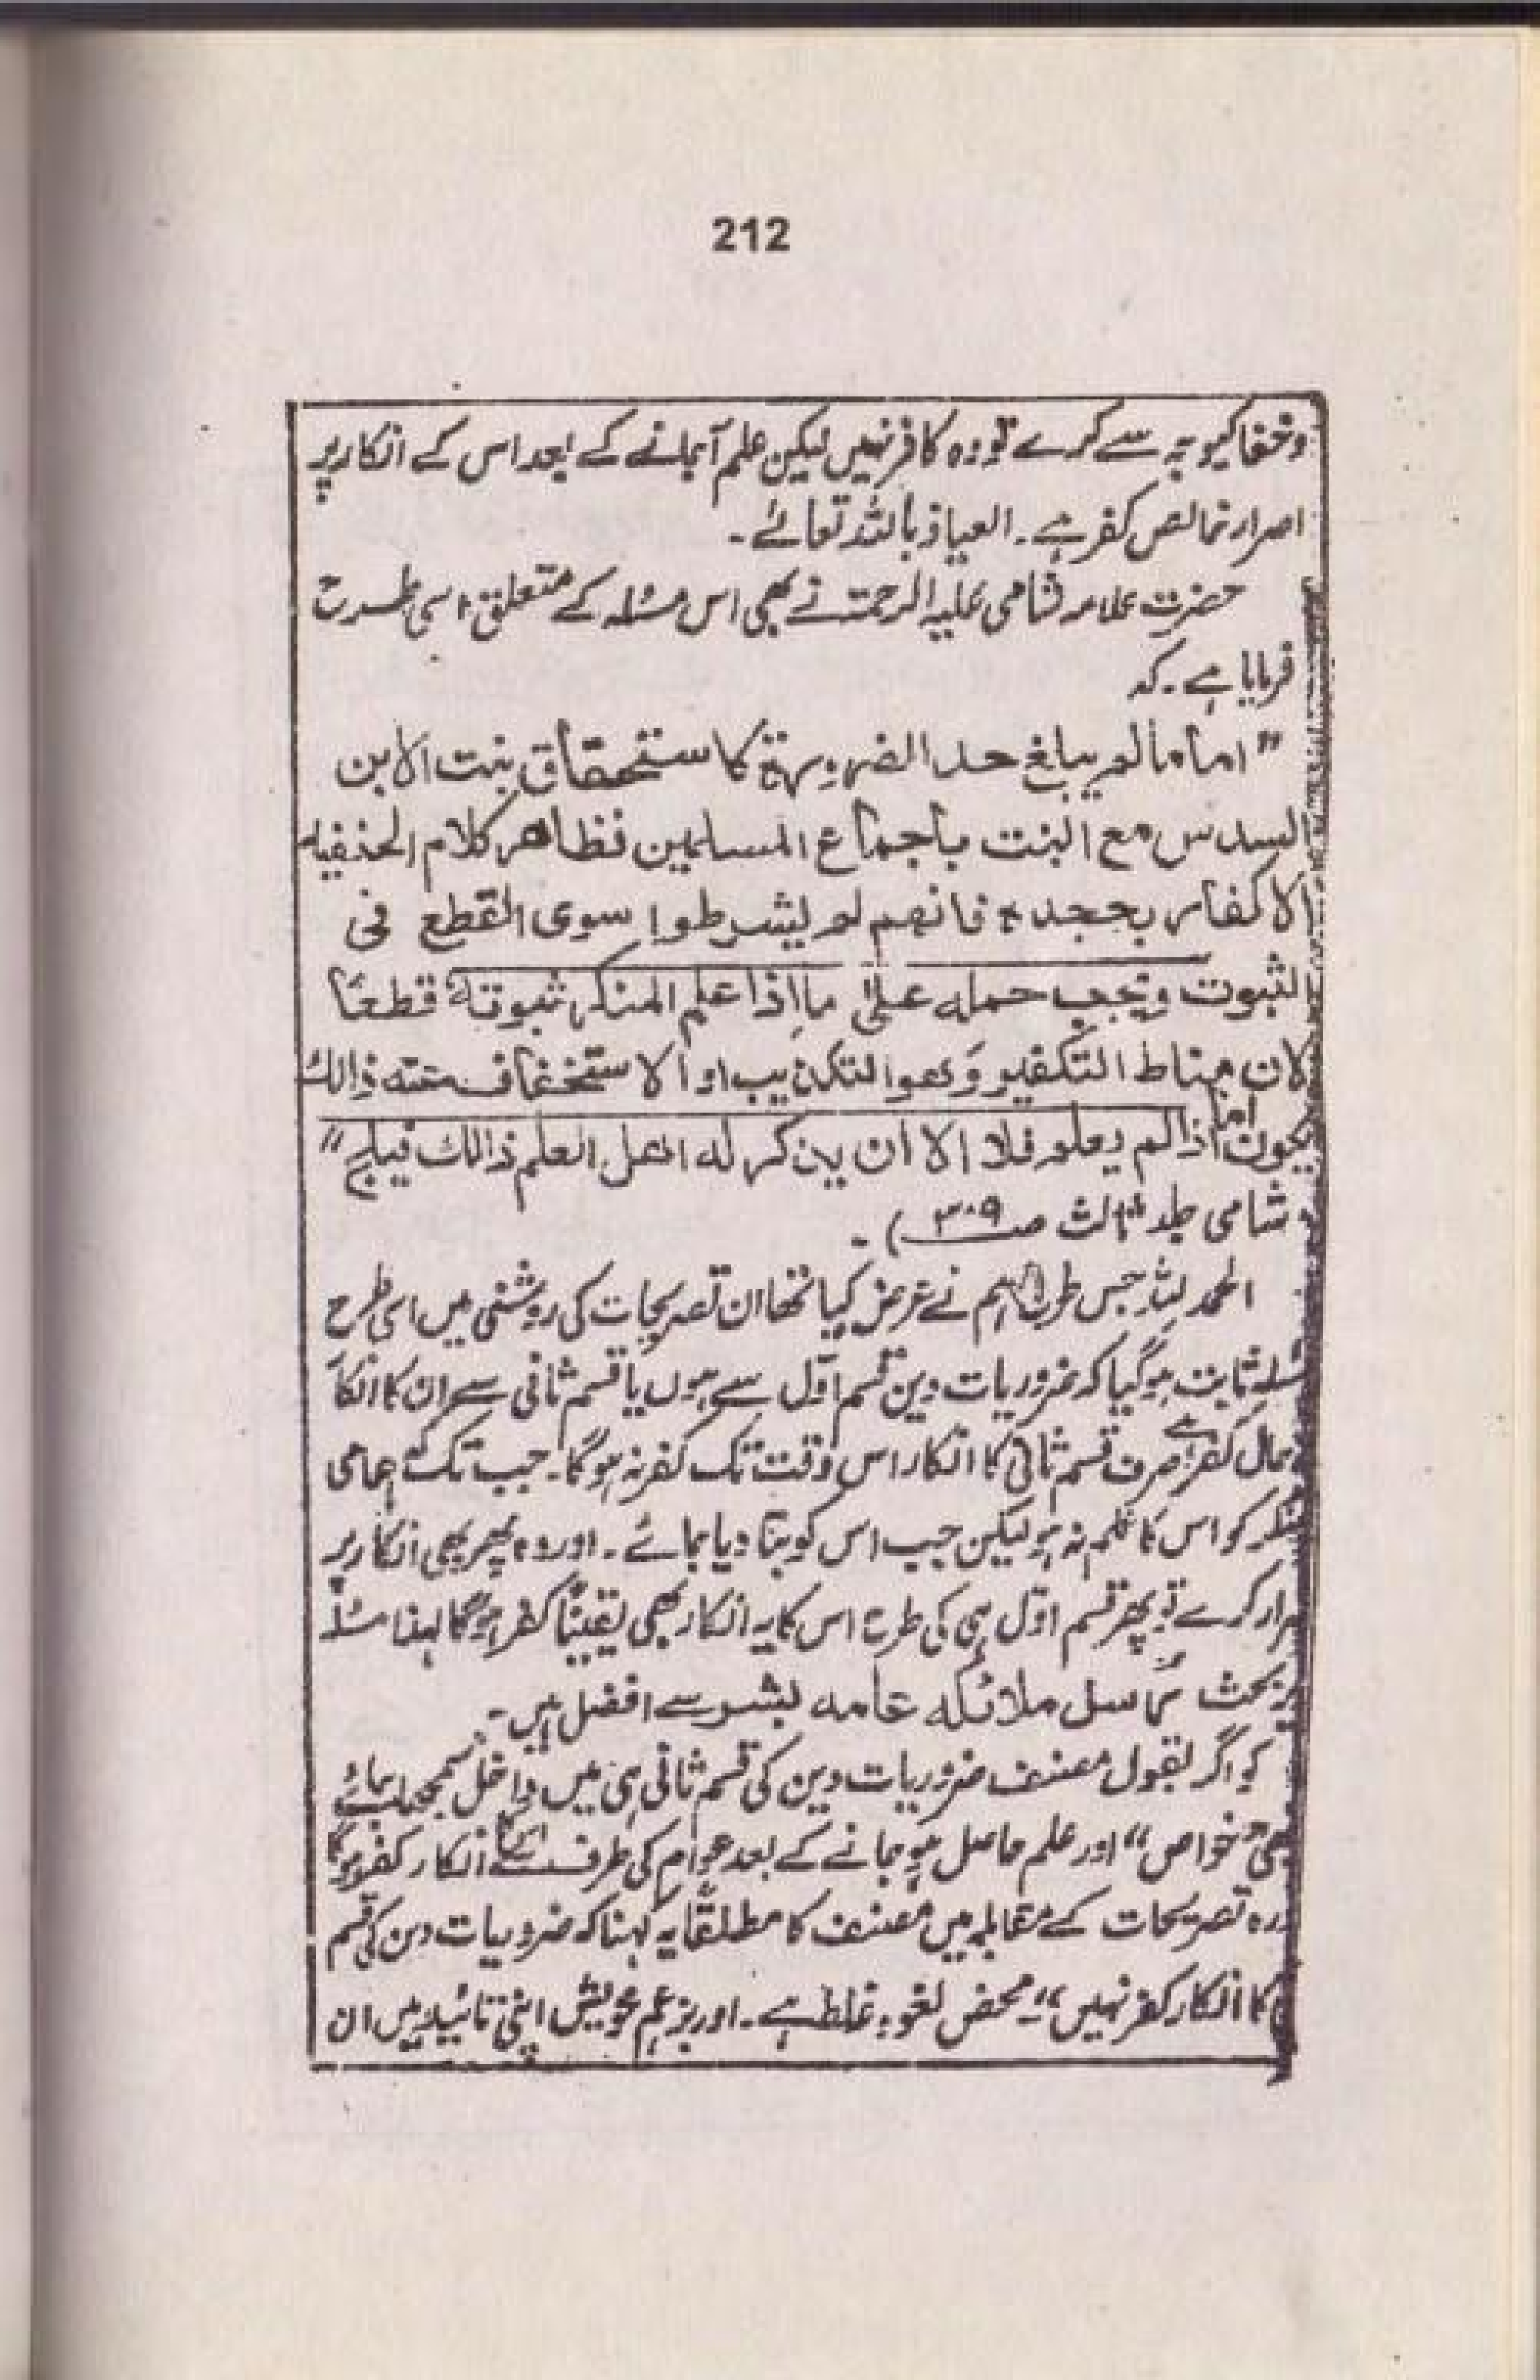 212
وخفا کیوجہ سے کرے تو وہ کافر نہیں لیکن علم آجانے کے بعد اس کے انکار پر
اصرار خالص کفر ہے۔ العیاذ باللہ تعالےٰ۔
حضرت علامہ شامی علیہ الرحمتہ نے بھی اس مسئلہ کے متعلق اسی طرح
فرمایا ہے۔ کہ
”اما مالم یبلغ حد الضرورۃ کاستحقاق بنت الابن
السدس مع البنت باجماع المسلمین فظاهر کلام الحنفیہ
الاکفار بجحدہ فانهم لم یشرطوا سوی القطع فی
الثبوت ویجب حملہ علیٰ ما اذا علم المنکر ثبوتہ قطعًا
لان مناط التکفیر وَهو التکذیب او الاستخفاف عنہ ذالك
یکون اما اذا لم یعلم فلا الا ان یذکر له اهل العلم ذالك فیلج“
شامی جلد ثالث صـ۳۰۹)۔
الحمد للہ جس طرح ہم نے عرض کیا تھا ان تصریحات کی روشنی میں اسی طرح
مسئلہ ثابت ہوگیا کہ ضروریات دین قسم اوّل سے ہوں یا قسم ثانی سے ان کا انکار
حال کفر ہے صرف قسم ثانی کا انکار اس وقت تک کفر نہ ہوگا۔ جب تک عامی
منکر کو اس کا علم نہ ہو لیکن جب اس کو بتا دیا جائے۔ اور وہ پھر بھی انکار پر
اصرار کرے تو پھر قسم اوّل ہی کی طرح اس کا یہ انکار بھی یقیناً کفر ہوگا لہذا مسئلہ
زیر بحث کہ رسل ملائکہ عامہ بشر سے افضل ہیں۔
کو اگر بقول مصنف ضروریات دین کی قسم ثانی ہی میں داخل سمجھا جائے
بھی ”خواص“ اور علم حاصل ہو جانے کے بعد عوام کی طرف سے اس کا انکار کفر ہوگا
تصریحات کے مقابلہ میں مصنف کا مطلقًا یہ کہنا کہ ضروریات دین کی قسم
کا انکار کفر نہیں“ محض لغو و غلط ہے۔ اور بزعم خویش اپنی تائید میں ان